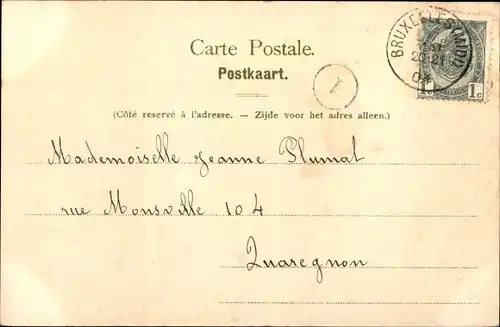 Carte Postale.
Postkaart.
BRUXELLES (MIDI)
04
1c 1c
1
(Côté reservé à l'adresse. — Zijde voor het adres alleen.)
Mademoiselle Jeanne Plumat
rue Monsville 104
Quaregnon